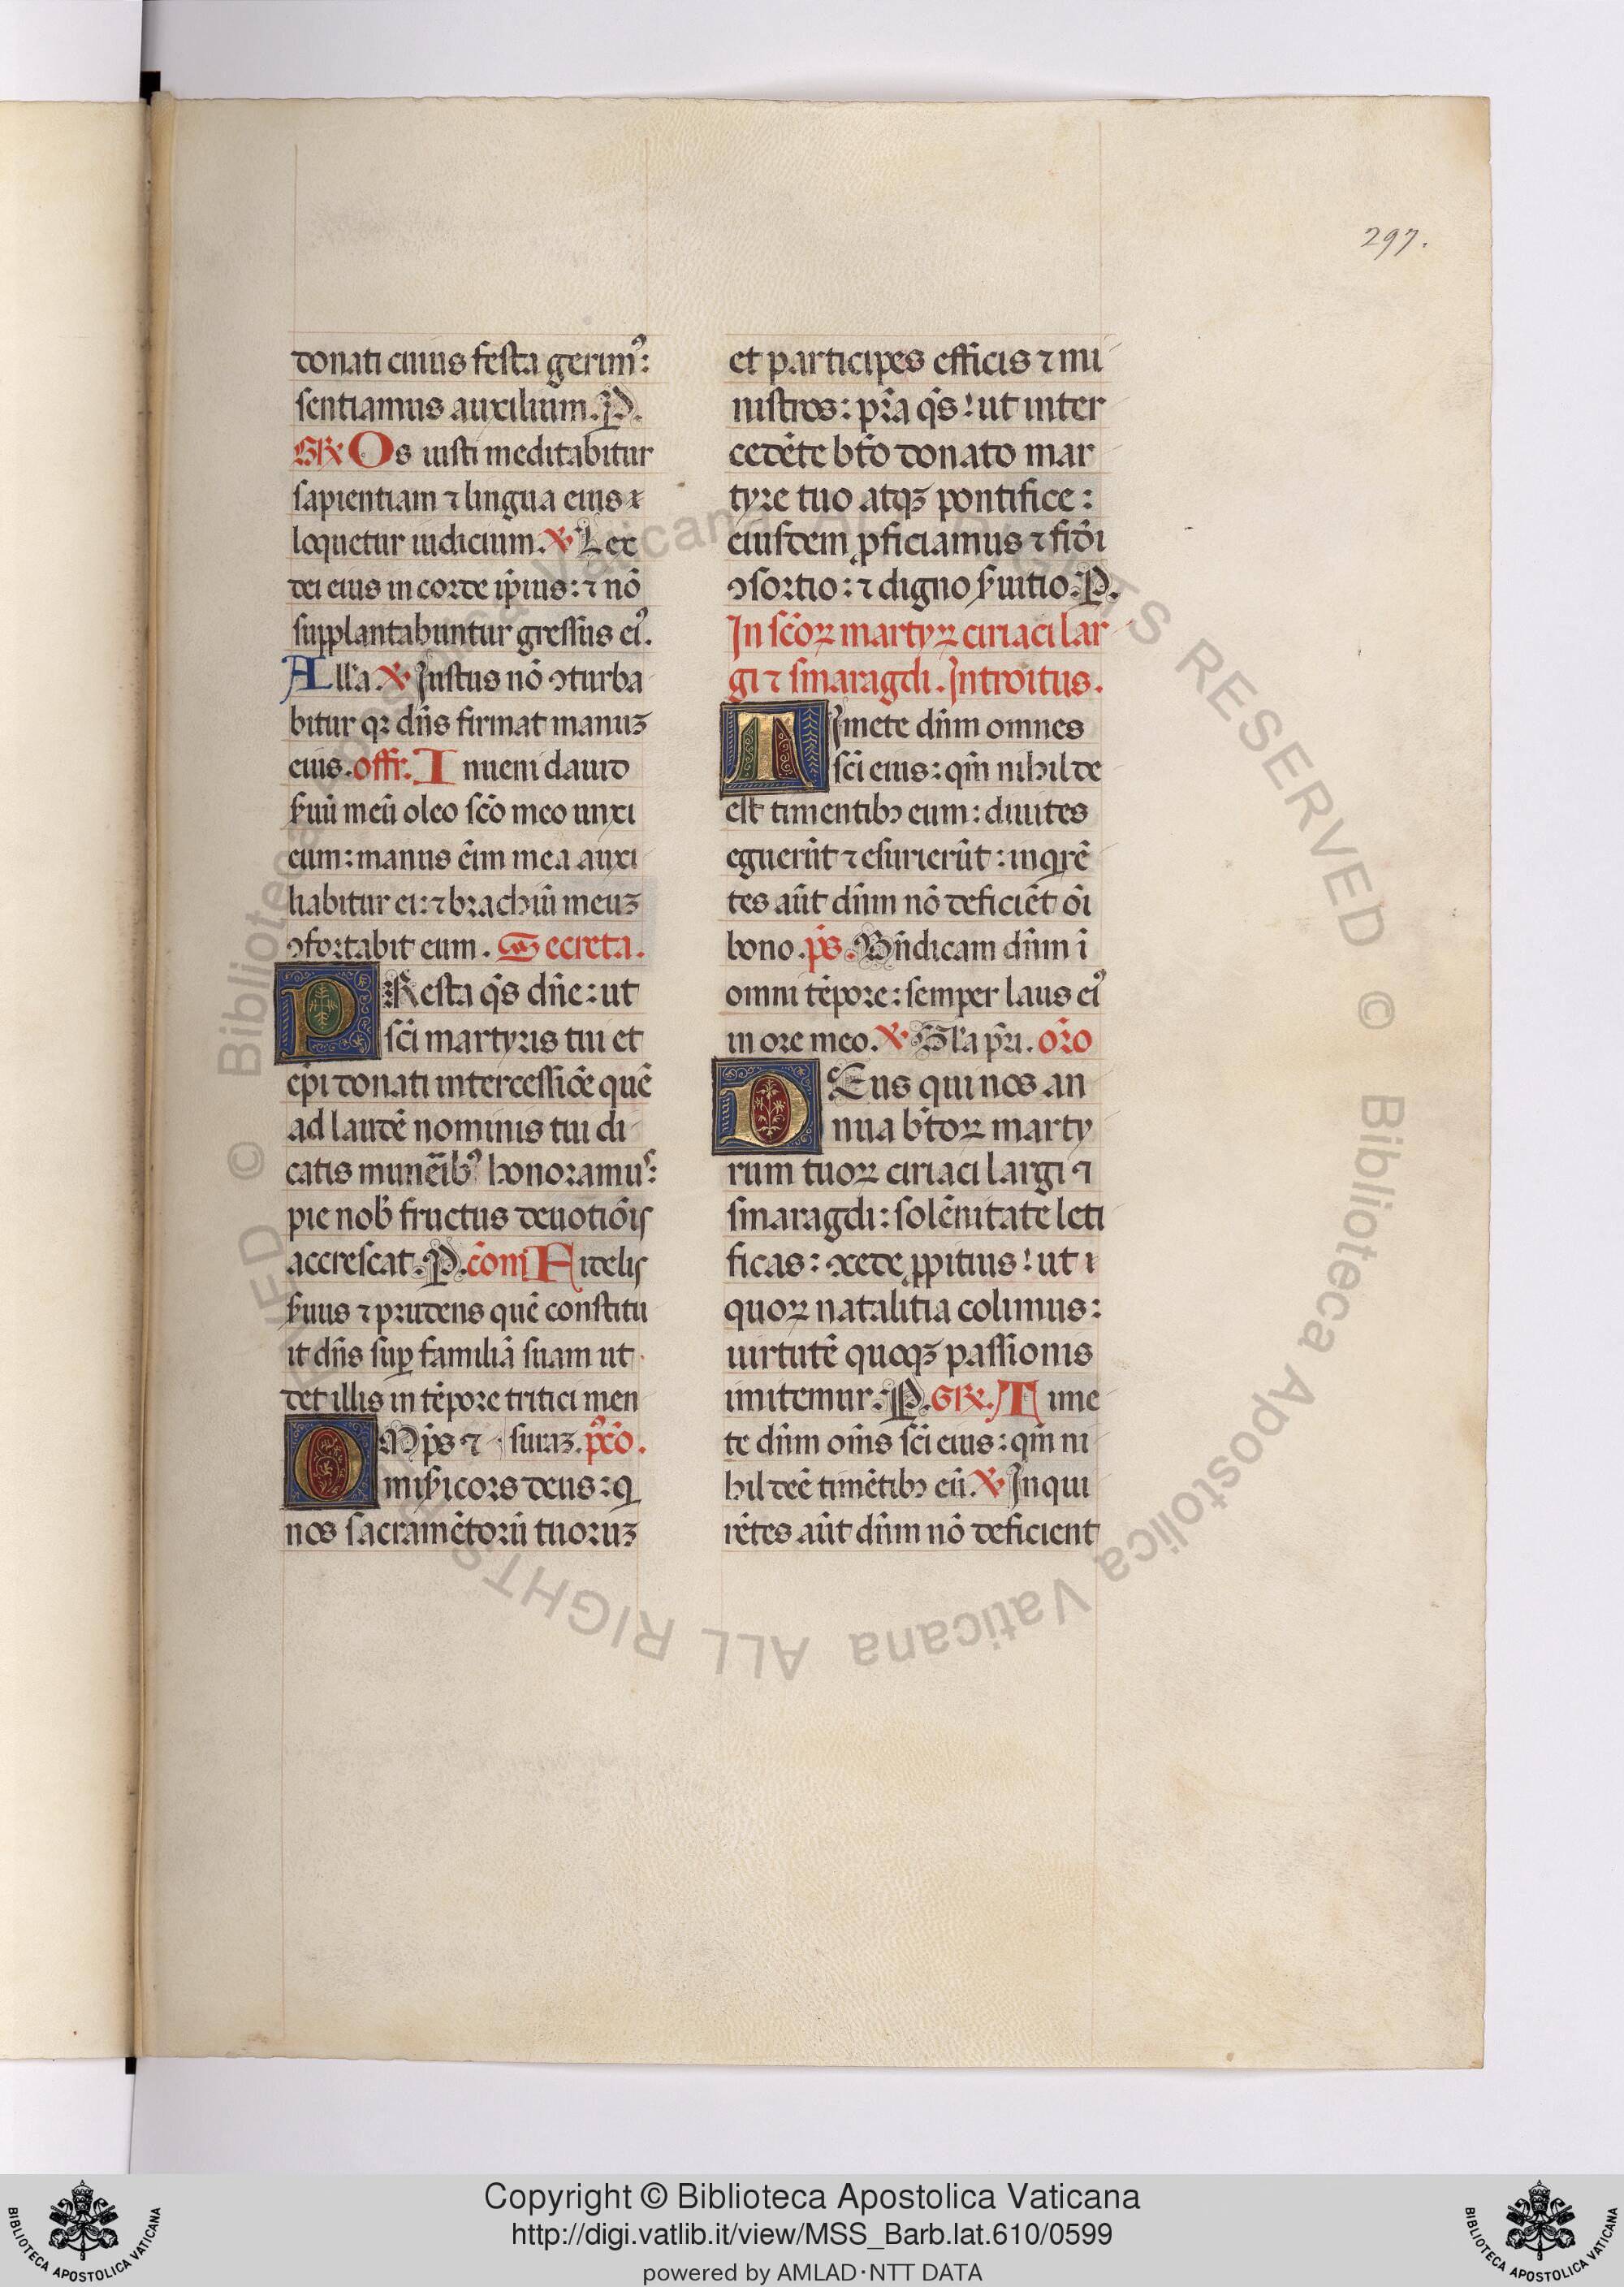 297.
donati cuius festa gerimꝰ:
sentiamus auxilium. P.
GR̃. Os iusti meditabitur
sapientiam ⁊ lingua eius
loquetur iudicium. ℣ Lex
dei eius in corde ip̃ius: ⁊ nõ
supplantabuntur gressus eiꝰ.
All'a. ℣ Justus nõ ↄturba
bitur qꝛ dñs firmat manuꝫ
eius. offr. Inueni dauid
s̃uũ meũ oleo sc̃o meo unxi
eum: manus eĩm mea auxi
liabitur ei: ⁊ brachiũ meuꝫ
ↄfortabit eum. Secreta.
PResta q̃s dñe: ut
sc̃i martyris tui et
ep̃i donati intercessiõe quẽ
ad laudẽ nominis tui di
catis munẽibꝰ honoramuˢ:
pie nob̃ fructus deuotiõis
accrescat. P. cõm Fidelis
s̃uus ⁊ prudens quẽ constitu
it dñs suꝑ familiã suam ut
det illis in tẽpore tritici men
OMp̃s ⁊ suraꝫ. pꝰcõ.
mis̃icors deus: q
nos sacramẽtorũ tuoruꝫ
et participes efficis ⁊ mi
nistros: pr̃a q̃s! ut inter
cedẽte bt̃o donato mar
tyre tuo atqꝫ pontifice:
eiusdem ꝓficiamus ⁊ fidẽi
ↄsortio: ⁊ digno s̃uitio. P.
In sc̃oꝝ martyꝝ ciriaci lar
gi ⁊ smaragdi. Introitus.
TImete dñm omnes
sc̃i eius: qm̃ nihil de
est timentibꝫ eum: diuites
eguerũt ⁊ esurierũt: inqrẽ
tes aũt dñm nõ deficiẽt õi
bono. p̃s. Bñdicam dñm ĩ
omni tẽpore: semper laus eiꝰ
in ore meo. ℣ Gl'a pr̃i. or̃o
DEus qui nos an
nua bt̃oꝝ marty
rum tuoꝝ ciriaci largi ⁊
smaragdi: solẽnitate leti
ficas: ↄcede ꝓpitius! ut
quoꝝ natalitia colimus:
uirtutẽ quoqꝫ passionis
imitemur. P. GR̃. Time
te dñm om̃s sc̃i eius: qm̃ ni
hil deẽ timẽtibꝫ eũ. ℣ Inqui
rẽtes aũt dñm nõ deficient
Copyright © Biblioteca Apostolica Vaticana
http://digi.vatlib.it/view/MSS_Barb.lat.610/0599
powered by AMLAD·NTT DATA
BIBLIOTECA APOSTOLICA VATICANA
BIBLIOTECA APOSTOLICA VATICANA
© Biblioteca Apostolica Vaticana ALL RIGHTS RESERVED © Biblioteca Apostolica Vaticana ALL RIGHTS RESERVED